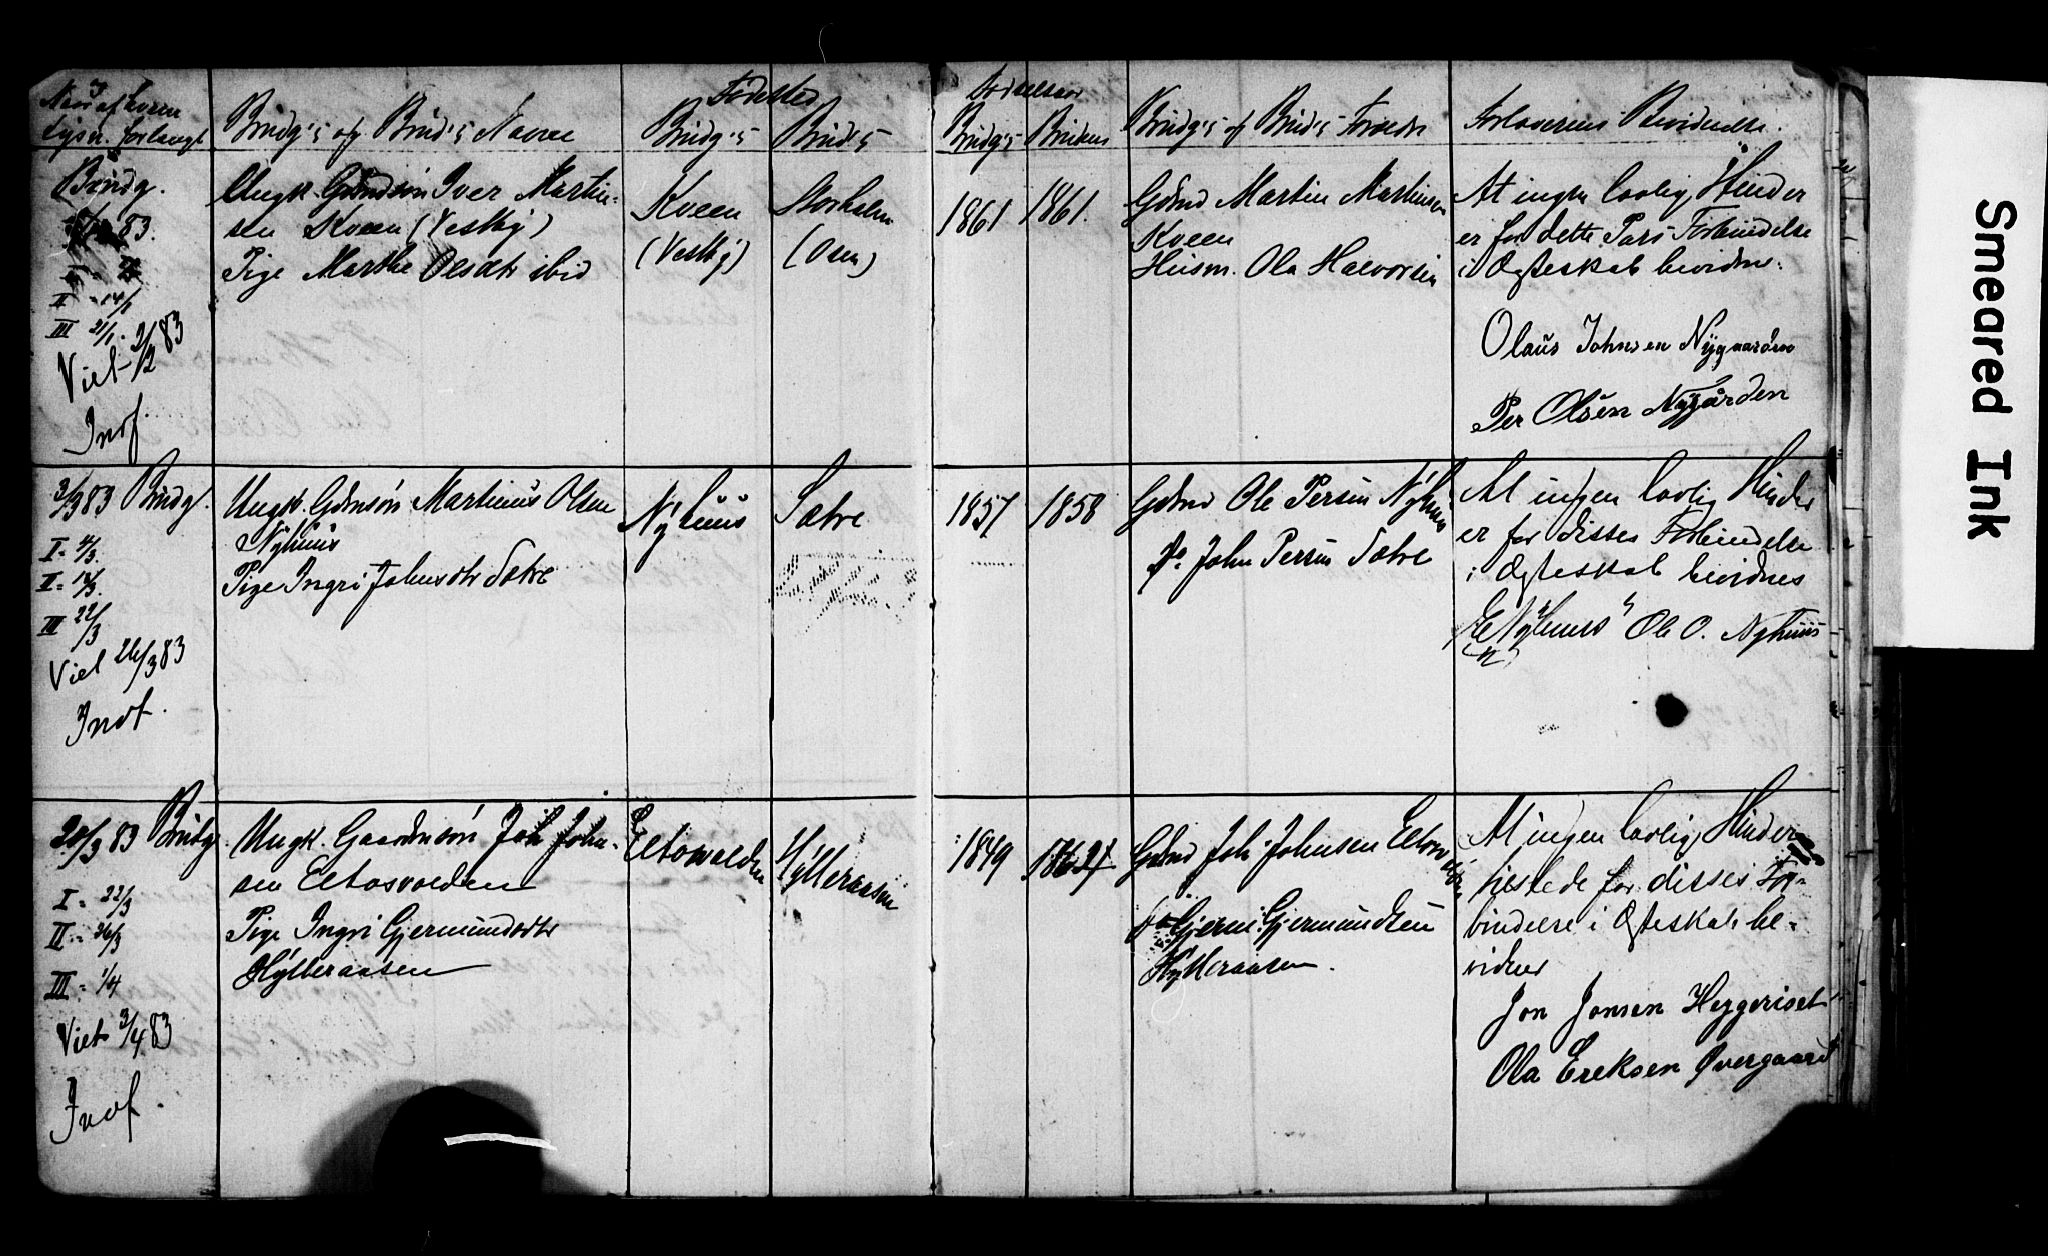 Naar af hvem
Lysn. forlangt
Brudg's og Brud's Navne
Fødested
Brudg's
Brud's
Fødselsaar
Brudg's
Brudens
Brudg's og Brud's Forældre
Forlovernes Bevidnelse.
Brudg.
83.
II = 14/1
III 21/1.
Viet 2/2 83
Inof.
Ungk. Gdmdsøn Iver Martin-
sen Kveen (Vestby)
Pige Marthe Olsdtr ibid
Kveen
(Vestby)
Storholm
(Osen)
1861
1861.
Gdmd Martin Martinsen
Kveen
Husm. Ola Halvorsen
At ingen lovlig Hinder
er for dette Pars Forbindelse
i Ægteskab bevidner:
Olaus Johnsen Nygaarden
Per Olsen Nygården
3/3 83 Brudg.
I = 4/3.
II = 18/3.
III 22/3
Viet 26/3 83
Inof.
Ungk. Gdmsøn Martinus Olsen
Nyhuus
Pige Ingri Johnsdtr Sætre
Nyhuus
Sætre
1857
1858
Gdmd Ole Persen Nyhuus
do John Persen Sætre
At ingen lovlig Hinder
er for disses Forbindelse
i Ægteskab bevidnes
E Nyhuus Ole O. Nyhuus
20/3 83 Brudg.
I = 22/3
II = 26/3
III = 1/4
Viet 3/4 83
Inof.
Ungk. Gaardmsøn Joh John-
sen Eltosvolden
Pige Ingri Gjermundsdtr
Hylleraasen
Eltosvolden
Hylleraasen
1849
Gdmd Joh Johnsen Eltosvolden
do Gjermund Gjermundsen
Hylleraasen.
At ingen lovlig Hinder
tilstede for disses For-
bindelse i Ægteskab be-
vidner
Jon Jonsen Heggeriset
Ola Ereksen Øvergaard
Smeared Ink